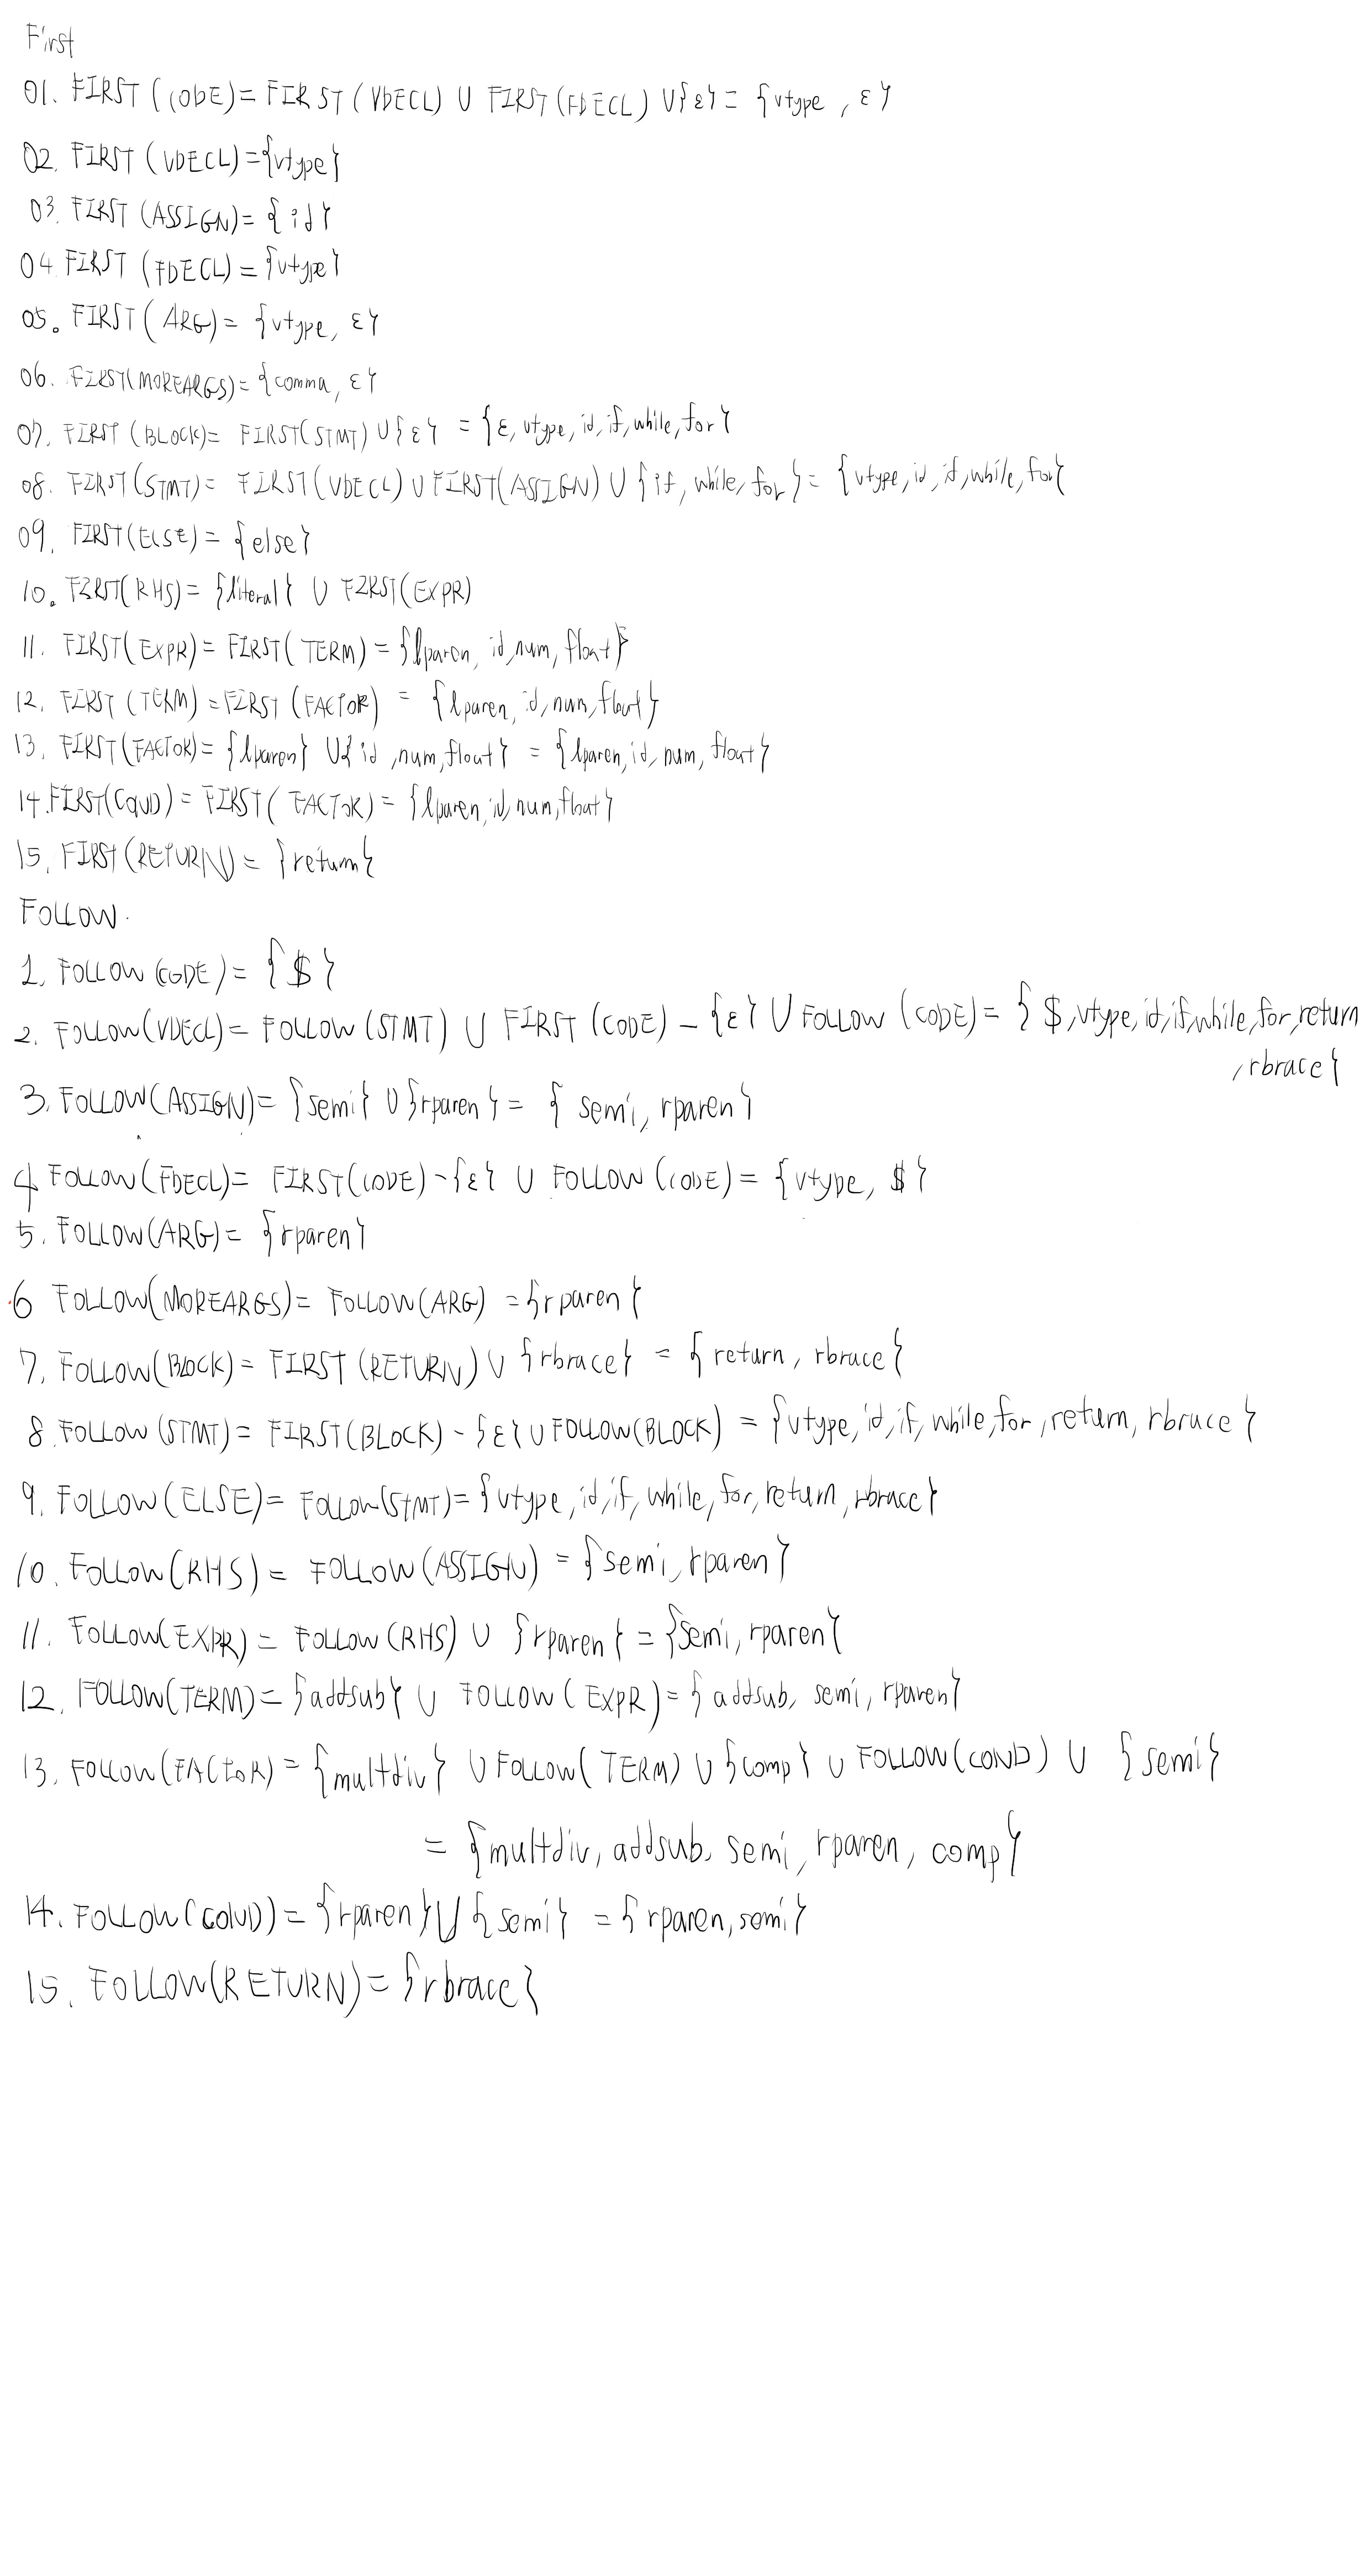 First
01. FIRST(CODE)= FIRST(VDECL) ∪ FIRST(FDECL) ∪{ε}= {vtype, ε}
02. FIRST(VDECL)={vtype}
03. FIRST(ASSIGN)= {id}
04. FIRST(FDECL)= {vtype}
05. FIRST(ARG)= {vtype, ε}
06. FIRST(MOREARGS)= {comma, ε}
07. FIRST(BLOCK)= FIRST(STMT) ∪{ε} = {ε, vtype, id, if, while, for}
08. FIRST(STMT)= FIRST(VDECL) ∪ FIRST(ASSIGN) ∪ {if, while, for}= {vtype, id, if, while, for}
09. FIRST(ELSE)= {else}
10. FIRST(RHS)= {literal} ∪ FIRST(EXPR)
11. FIRST(EXPR)= FIRST(TERM)= {lparen, id, num, float}
12. FIRST(TERM)=FIRST(FACTOR) = {lparen, id, num, float}
13. FIRST(FACTOR)= {lparen} ∪{id, num, float} = {lparen, id, num, float}
14. FIRST(COND)= FIRST(FACTOR)= {lparen, id, num, float}
15. FIRST(RETURN)= {return}
FOLLOW.
1. FOLLOW(CODE)= {$}
2. FOLLOW(VDECL)= FOLLOW(STMT) ∪ FIRST(CODE) - {ε} ∪ FOLLOW(CODE)= {$, vtype, id, if, while, for, return
, rbrace}
3. FOLLOW(ASSIGN)= {semi} ∪ {rparen}= {semi, rparen}
4 FOLLOW(FDECL)= FIRST(CODE)-{ε} ∪ FOLLOW(CODE)= {vtype, $}
5. FOLLOW(ARG)= {rparen}
6 FOLLOW(MOREARGS)= FOLLOW(ARG) ={rparen}
7. FOLLOW(BLOCK)= FIRST(RETURN) ∪ {rbrace} = {return, rbrace}
8. FOLLOW(STMT)= FIRST(BLOCK) - {ε} ∪ FOLLOW(BLOCK) = {vtype, id, if, while, for, return, rbrace}
9. FOLLOW(ELSE)= FOLLOW(STMT)= {vtype, id, if, while, for, return, rbrace}
10. FOLLOW(RHS)= FOLLOW(ASSIGN) = {semi, rparen}
11. FOLLOW(EXPR)= FOLLOW(RHS) ∪ {rparen} = {semi, rparen}
12. FOLLOW(TERM)= {addsub} ∪ FOLLOW(EXPR)= {addsub, semi, rparen}
13. FOLLOW(FACTOR)= {multdiv} ∪ FOLLOW(TERM) ∪ {comp} ∪ FOLLOW(COND) ∪ {semi}
= {multdiv, addsub, semi, rparen, comp}
14. FOLLOW(COND)= {rparen} ∪ {semi} = {rparen, semi}
15. FOLLOW(RETURN)= {rbrace}